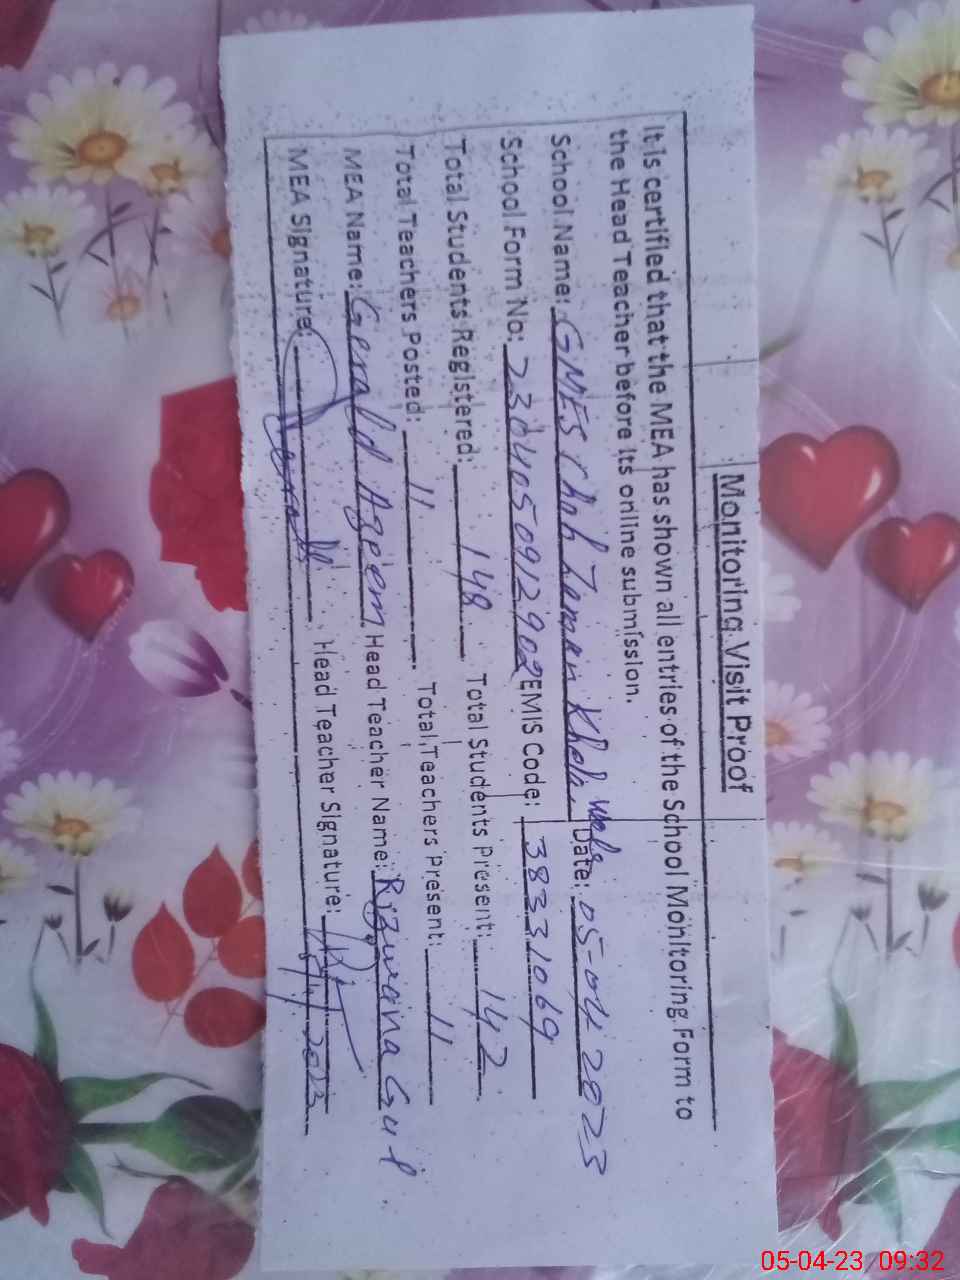 Monitoring Visit Proof
It is certified that the MEA has shown all entries of the School Monitoring Form to
the Head Teacher before its online submission.
School Name: GMES Shah Zaman Date: 05-04 2023
School Form No: 2304050912902 EMIS Code: 38331069
Total Students Registered: 148 Total Students Present: 142
Total Teachers Posted: 11 Total Teachers Present: 11
MEA Name: Gerald Azeem Head Teacher Name: Rizwana Gul
MEA Signature: Head Teacher Signature:
05-04-23 09:32